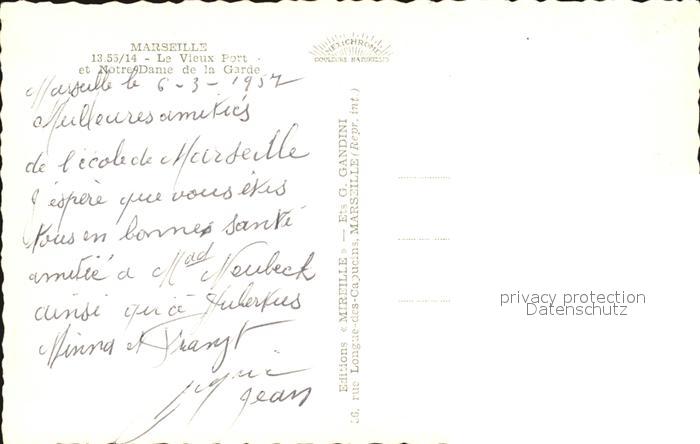 MARSEILLE
13.55/14 - Le Vieux Port
et Notre-Dame de la Garde
HELICHROME
COULEURS NATURELLES
Marseille le 6-3-1957
Meilleures amitiés
de l'école de Marseille
J'éspère que vous êtes
tous en bonnes santé
amitié a Mad Neubeck
ainsi qu'à Hubertus
Minna et Franzt
Jean
Editions « MIREILLE » — Ets G. GANDINI
rue Longue-des-Capucins, MARSEILLE (Repr. int.)
privacy protection
Datenschutz